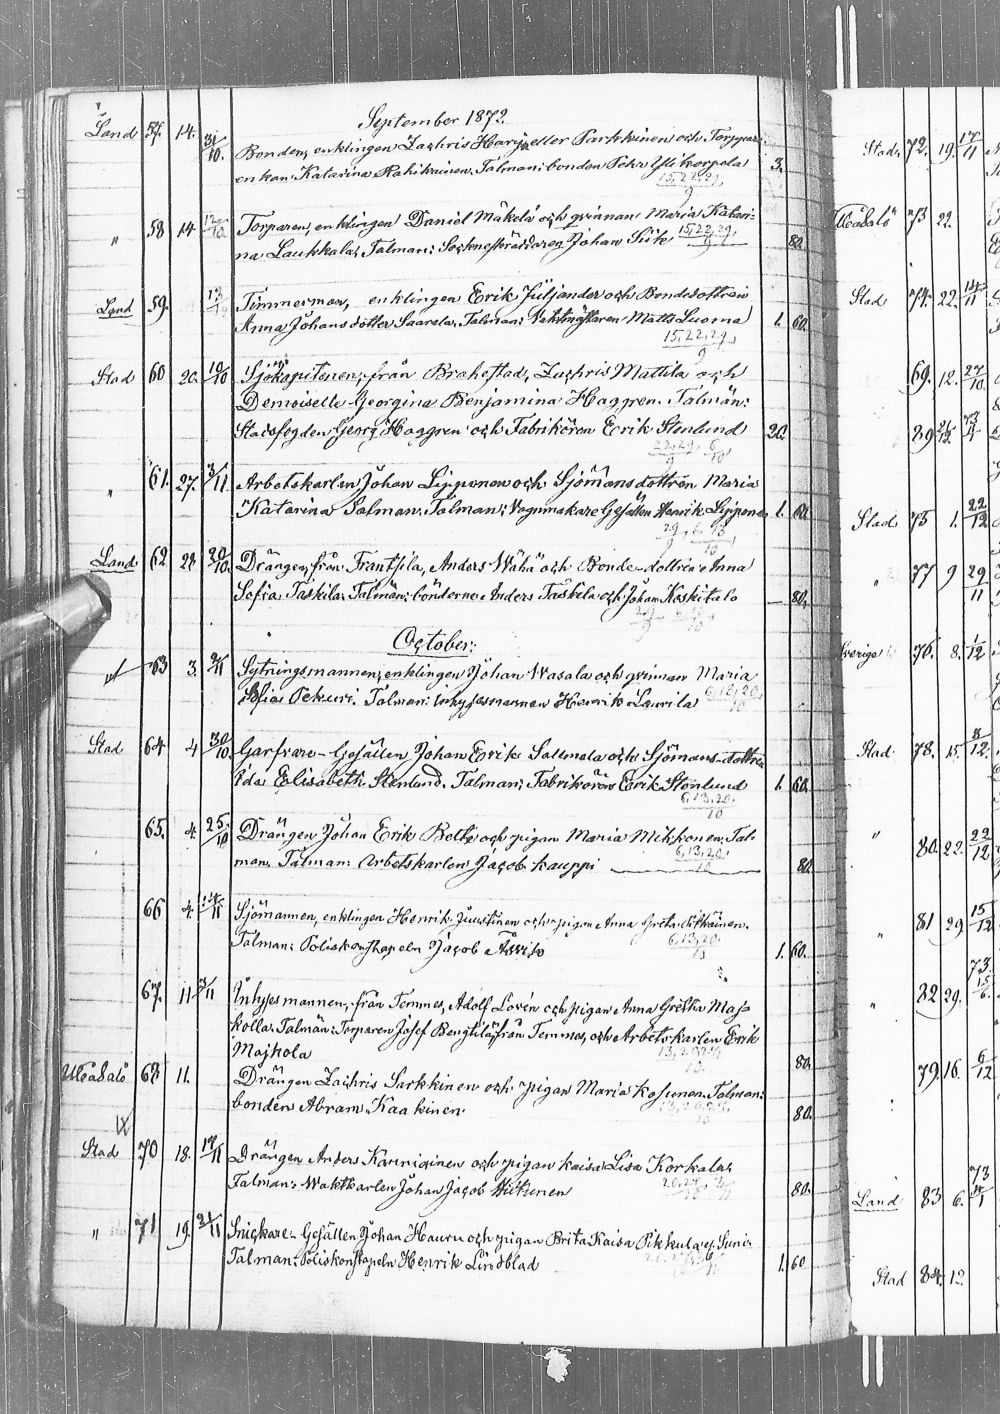 September 1872.
Land 57. 14. 31/10. Bonden, enklingen Zachris Harju eller Parkkinen och Torpare-
enkan Katarina Rahikainen. Talman: bonden Pehr Ylikorpela 3.
15, 22, 29/9
" 58 14 12/10 Torparen, enklingen Daniel Mäkelä och qvinnan Maria Katari-
na Laukkala, Talman: Sockneskräddaren Johan Siik 15, 22, 29/9 80.
Land 59. Timmerman, enklingen Erik Juljander och Bondedottren
Anna Johansdotter Saarela. Talman: Vaktmästaren Matts Luoma 1. 60.
15, 22, 29/9
Stad 60 20. 10/10 Sjökapitenen, från Brahestad, Zachris Mattila och
Demoiselle Georgina Benjamina Haggren. Talmän:
Stadsfogden Georg Haggren och Fabrikören Erik Stenlund 20.
22, 29/9 6/10
" 61. 27. 3/11 Arbetskarlen Johan Lipponen och Sjömansdottren Maria
Katarina Salman. Talman: Vagnmakare Gesällen Henrik Lipponen 1. 60.
29/9 6, 13/10
Land 62 28 20/10. Drängen, från Frantsila, Anders Wähä och Bonde-dottren Anna
Sofia Taskila. Talmän: bönderne Anders Taskila och Johan Koskitalo — 80.
29/9 6, 13/10
October:
63 3. 9/11 Sytningsmannen, enklingen Johan Wasala och qvinnan Maria
Sofia Pekuri. Talman: inhysesmannen Henrik Laurila 6, 13, 20/10
Stad 64 4 30/10. Garfvare-Gesällen Johan Erik Salmela och Sjömans-dottren
Ida Elisabeth Stenlund. Talman: Fabrikören Erik Stenlund 1. 60.
6, 13, 20./10
65. 4. 25/10 Drängen Johan Erik Bolt och pigan Maria Mikkonen. Tal-
man. Talman: Arbetskarlen Jacob Kauppi 80.
6, 13, 20/10
66 4. 14/11 Sjömannen, enklingen Henrik Juustinen och pigan Anna Greta Pitkänen.
Talman: Poliskonstapeln Jacob 1. 60.
6, 13, 20./10
67. 11 3/11 Inhyses mannen, från Temmes, Adolf Lovén och pigan Anna Gretha Maj-
kolla. Talmän: Torparen Josef Bengtilä, från Temmes, och Arbetskarlen Erik
Majkola 80.
Uleåsalo 68 11. Drängen Zachris Sarkkinen och pigan Maria Kosunen. Talman:
bonden Abram Kaakinen. 80.
Stad 70 18. 17/11 Drängen Anders Karniainen och pigan Kaisa Lisa Korkala,
Talman: Waktkarlen Johan Jacob 80.
" 71 19. Snickare-Gesällen Johan Hauru och pigan Brita Kaisa Pikkula
Talman: Poliskonstapeln Henrik Lindblad 1. 60
Stad 72. 19. 17/11
Uleåsalo 73 22.
Stad 74. 22. 14/11
69. 12. 27/10.
89
Stad 75 1. 22/12
" 77 9 29/11
Sverige 76. 8. 1/12
Stad 78. 15. 8/12.
" 80. 22. 22/12
" 81 29. 15/12
" 82 29. 73 15/6.
79. 16. 6/12
Land 83 6. 73
Stad 84. 12.